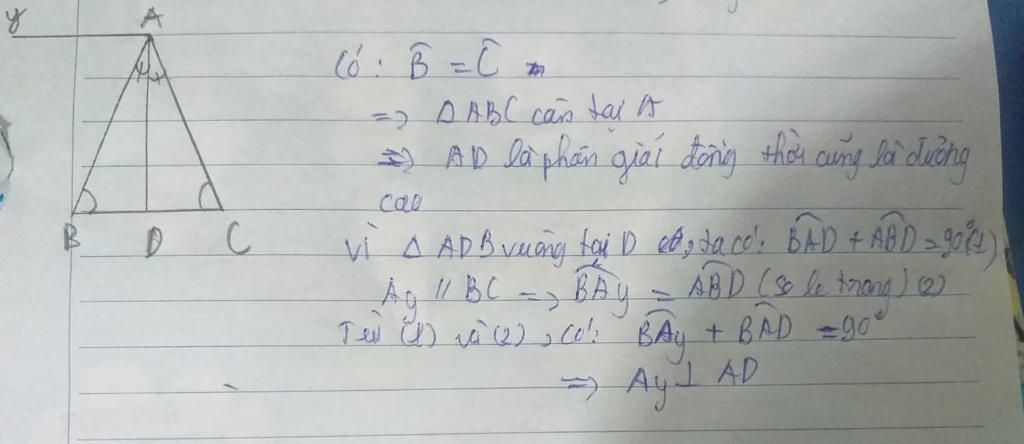 y A
Có: B̂ = Ĉ
=> ΔABC cân tại A
=> AD là phân giái đồng thời cũng là đường
cao
B D C
Vì ΔADB vuông tại D , ta có: BAD + ABD = 90° (1)
Ay // BC => BAy = ABD (so le trong) (2)
Từ (1) và (2), có: BAy + BAD = 90°
=> Ay ⊥ AD